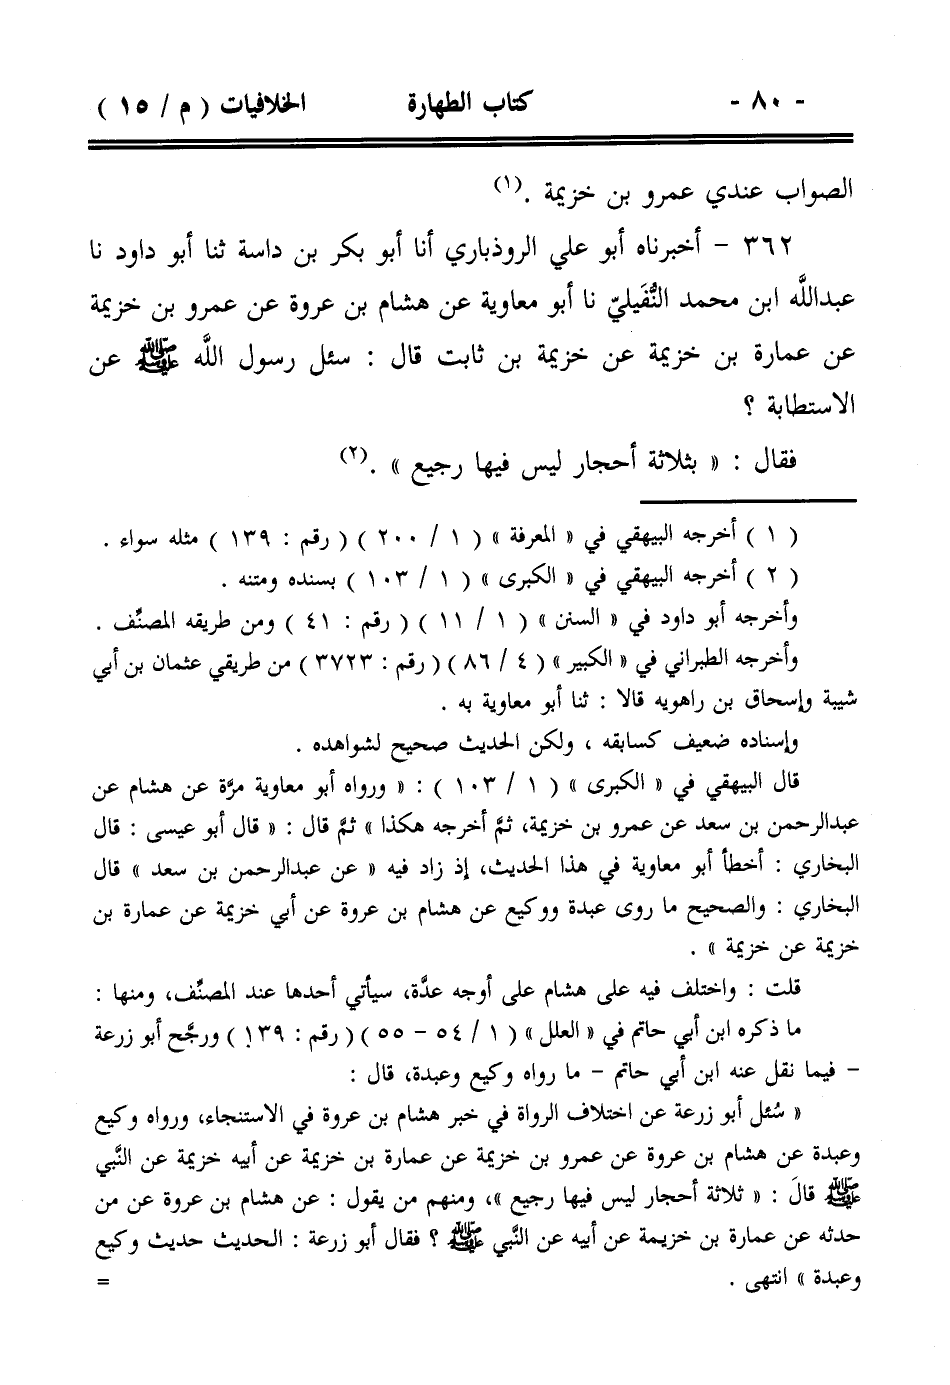 - ٨٠ - كتاب الطهارة الخلافيات ( م / ١٥ )
الصواب عندي عمرو بن خزيمة .(١)
٣٦٢ - أخبرناه أبو علي الروذباري أنا أبو بكر بن داسة ثنا أبو داود نا
عبداللَّه ابن محمد النُّفَيليّ نا أبو معاوية عن هشام بن عروة عن عمرو بن خزيمة
عن عمارة بن خزيمة عن خزيمة بن ثابت قال : سئل رسول اللَّه ﷺ عن
الاستطابة ؟
فقال : « بثلاثة أحجار ليس فيها رجيع » .(٢)
( ١ ) أخرجه البيهقي في « المعرفة » ( ١ / ٢٠٠ ) ( رقم : ١٣٩ ) مثله سواء .
( ٢ ) أخرجه البيهقي في « الكبرى » ( ١ / ١٠٣ ) بسنده ومتنه .
وأخرجه أبو داود في « السنن » ( ١ / ١١ ) ( رقم : ٤١ ) ومن طريقه المصنِّف .
وأخرجه الطبراني في « الكبير » ( ٤ / ٨٦ ) ( رقم : ٣٧٢٣ ) من طريقي عثمان بن أبي
شيبة وإسحاق بن راهويه قالا : ثنا أبو معاوية به .
وإسناده ضعيف كسابقه ، ولكن الحديث صحيح لشواهده .
قال البيهقي في « الكبرى » ( ١ / ١٠٣ ) : « ورواه أبو معاوية مرَّة عن هشام عن
عبدالرحمن بن سعد عن عمرو بن خزيمة، ثمَّ أخرجه هكذا » ثمَّ قال : « قال أبو عيسى : قال
البخاري : أخطأ أبو معاوية في هذا الحديث، إذ زاد فيه « عن عبدالرحمن بن سعد » قال
البخاري : والصحيح ما روى عبدة ووكيع عن هشام بن عروة عن أبي خزيمة عن عمارة بن
خزيمة عن خزيمة » .
قلت : واختلف فيه على هشام على أوجه عدَّة، سيأتي أحدها عند المصنِّف، ومنها :
ما ذكره ابن أبي حاتم في « العلل » ( ١ / ٥٤ - ٥٥ ) ( رقم : ١٣٩ ) ورجَّح أبو زرعة
- فيما نقل عنه ابن أبي حاتم - ما رواه وكيع وعبدة، قال :
« سُئل أبو زرعة عن اختلاف الرواة في خبر هشام بن عروة في الاستنجاء، ورواه وكيع
وعبدة عن هشام بن عروة عن عمرو بن خزيمة عن عمارة بن خزيمة عن أبيه خزيمة عن النَّبي
ﷺ قالَ : « ثلاثة أحجار ليس فيها رجيع »، ومنهم من يقول : عن هشام بن عروة عن من
حدثه عن عمارة بن خزيمة عن أبيه عن النَّبي ﷺ ؟ فقال أبو زرعة : الحديث حديث وكيع
وعبدة » انتهى . =